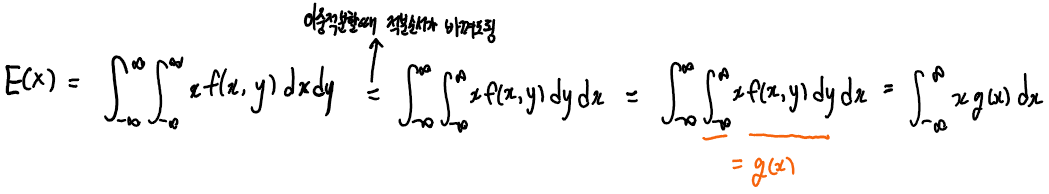 이중적분할때 적분순서가 바껴도됨
E(x) = ∫_{-∞}^{∞} ∫_{-∞}^{∞} x f(x, y) dx dy = ∫_{-∞}^{∞} ∫_{-∞}^{∞} x f(x, y) dy dx = ∫_{-∞}^{∞} ∫_{-∞}^{∞} x f(x, y) dy dx = ∫_{-∞}^{∞} x g(x) dx
= g(x)